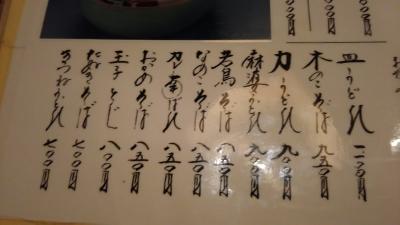 皿うどん 一二〇〇円
木のこそば 九五〇円
力うどん 九〇〇円
麻婆うどん 九〇〇円
若鳥そば 八五〇円
なのこそば 八五〇円
カレー南ばん 八五〇円
おかめそば 八五〇円
玉子とじ 八〇〇円
たぬきそば 七〇〇円
きつねうどん 七〇〇円